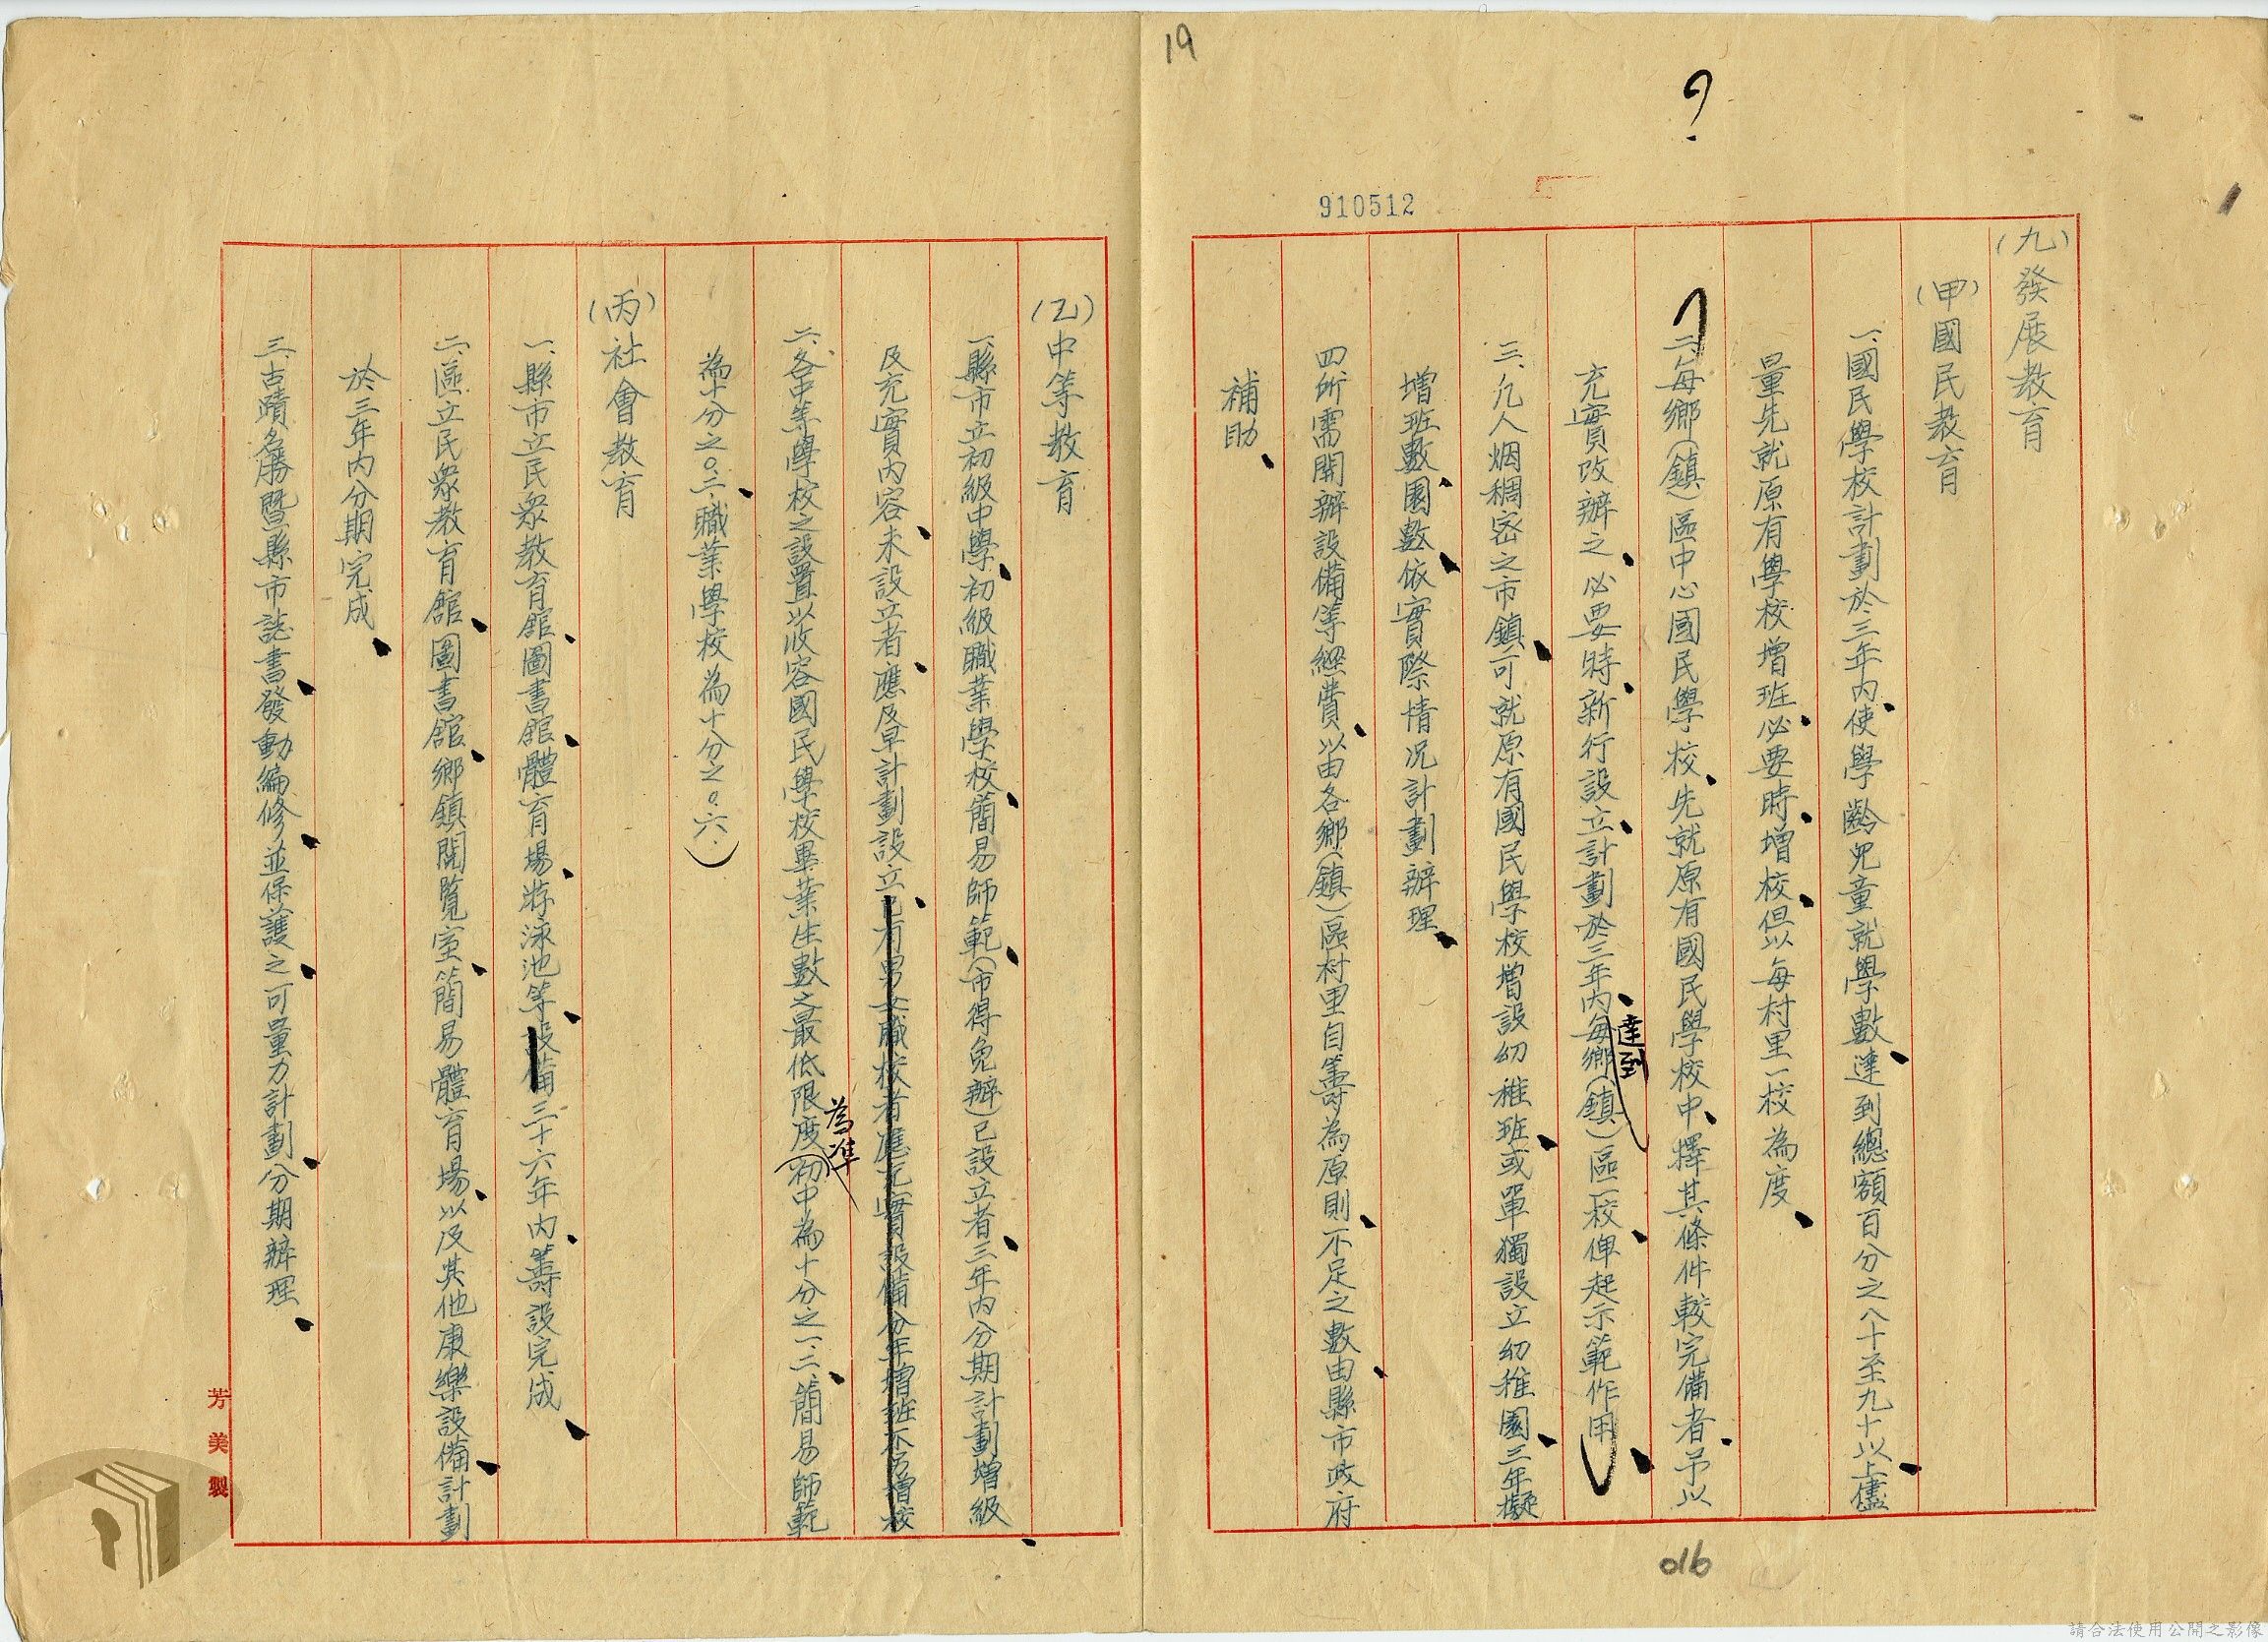 19
?
910512
(九)發展教育
(甲)國民教育
一、國民學校計劃於三年內、使學齡兒童就學數、達到總額百分之八十至九十以上、儘
量先就原有學校增班、必要時、增校、但以每村里一校為度、
二、每鄉(鎮)區中心國民學校、先就原有國民學校中、擇其條件較完備者、予以
充實改辦之、必要時、新行設立、計劃於三年內、每鄉(鎮)區一校、俾起示範作用、
達到
三、凡人烟稠密之市鎮、可就原有國民學校增設幼稚班、或單獨設立幼稚園、三年擬
增班數、園數、依實際情況計劃辦理、
四所需開辦設備等經費、以由各鄉(鎮)區村里自籌為原則、不足之數、由縣市政府
補助、
016
(乙)中等教育
一、縣市立初級中學、初級職業學校、簡易師範、(市得免辦)已設立者、三年內分期計劃增級、
及充實內容、未設立者、應及早計劃設立、已有男女職校者應充實設備分年增班不另增校
二、各中等學校之設置以收容國民學校畢業生數之最低限度(初中為十分之一、二、簡易師範
為準
為十分之〇.二、職業學校為十分之〇.六.)
(丙)社會教育
一、縣市立民眾教育館、圖書館、體育場、游泳池等、設備三十六年內、籌設完成、
二、區立民眾教育館、圖書館、鄉鎮閱覽室、簡易體育場、以及其他康樂設備、計劃
於三年內分期完成、
三、古蹟名勝暨縣市誌書、發動編修、並保護之、可量力計劃、分期辦理、
芳美製
請合法使用公開之影像